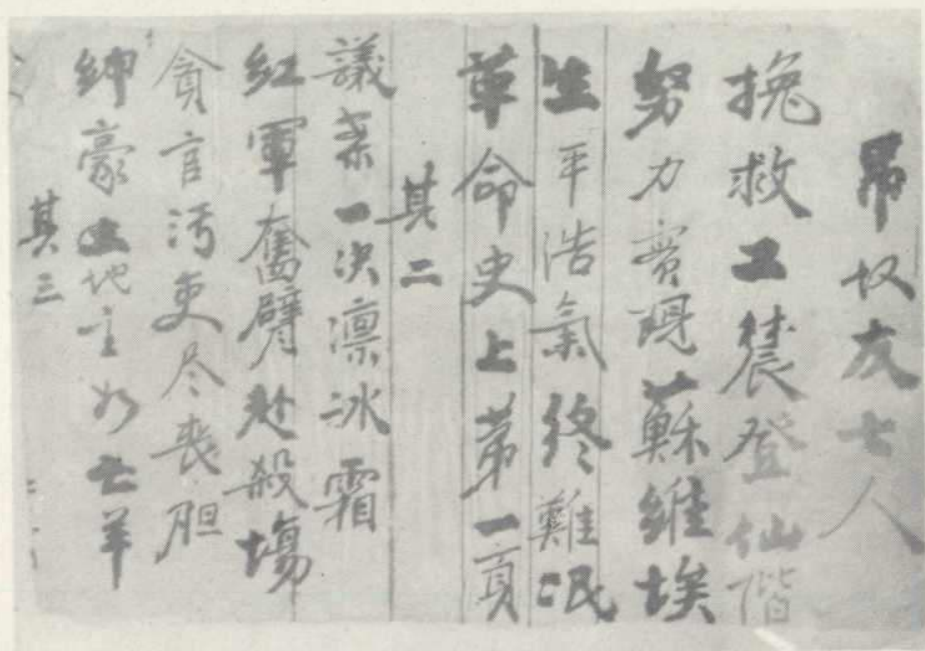 吊奴友七人
挽救工農登仙階
努力實現蘇維埃
生平浩氣終難泯
革命史上第一頁
其二
議案一决凛冰霜
紅軍奮臂赴殺場
貪官污吏尽丧胆
紳豪土地主如亡羊
其三